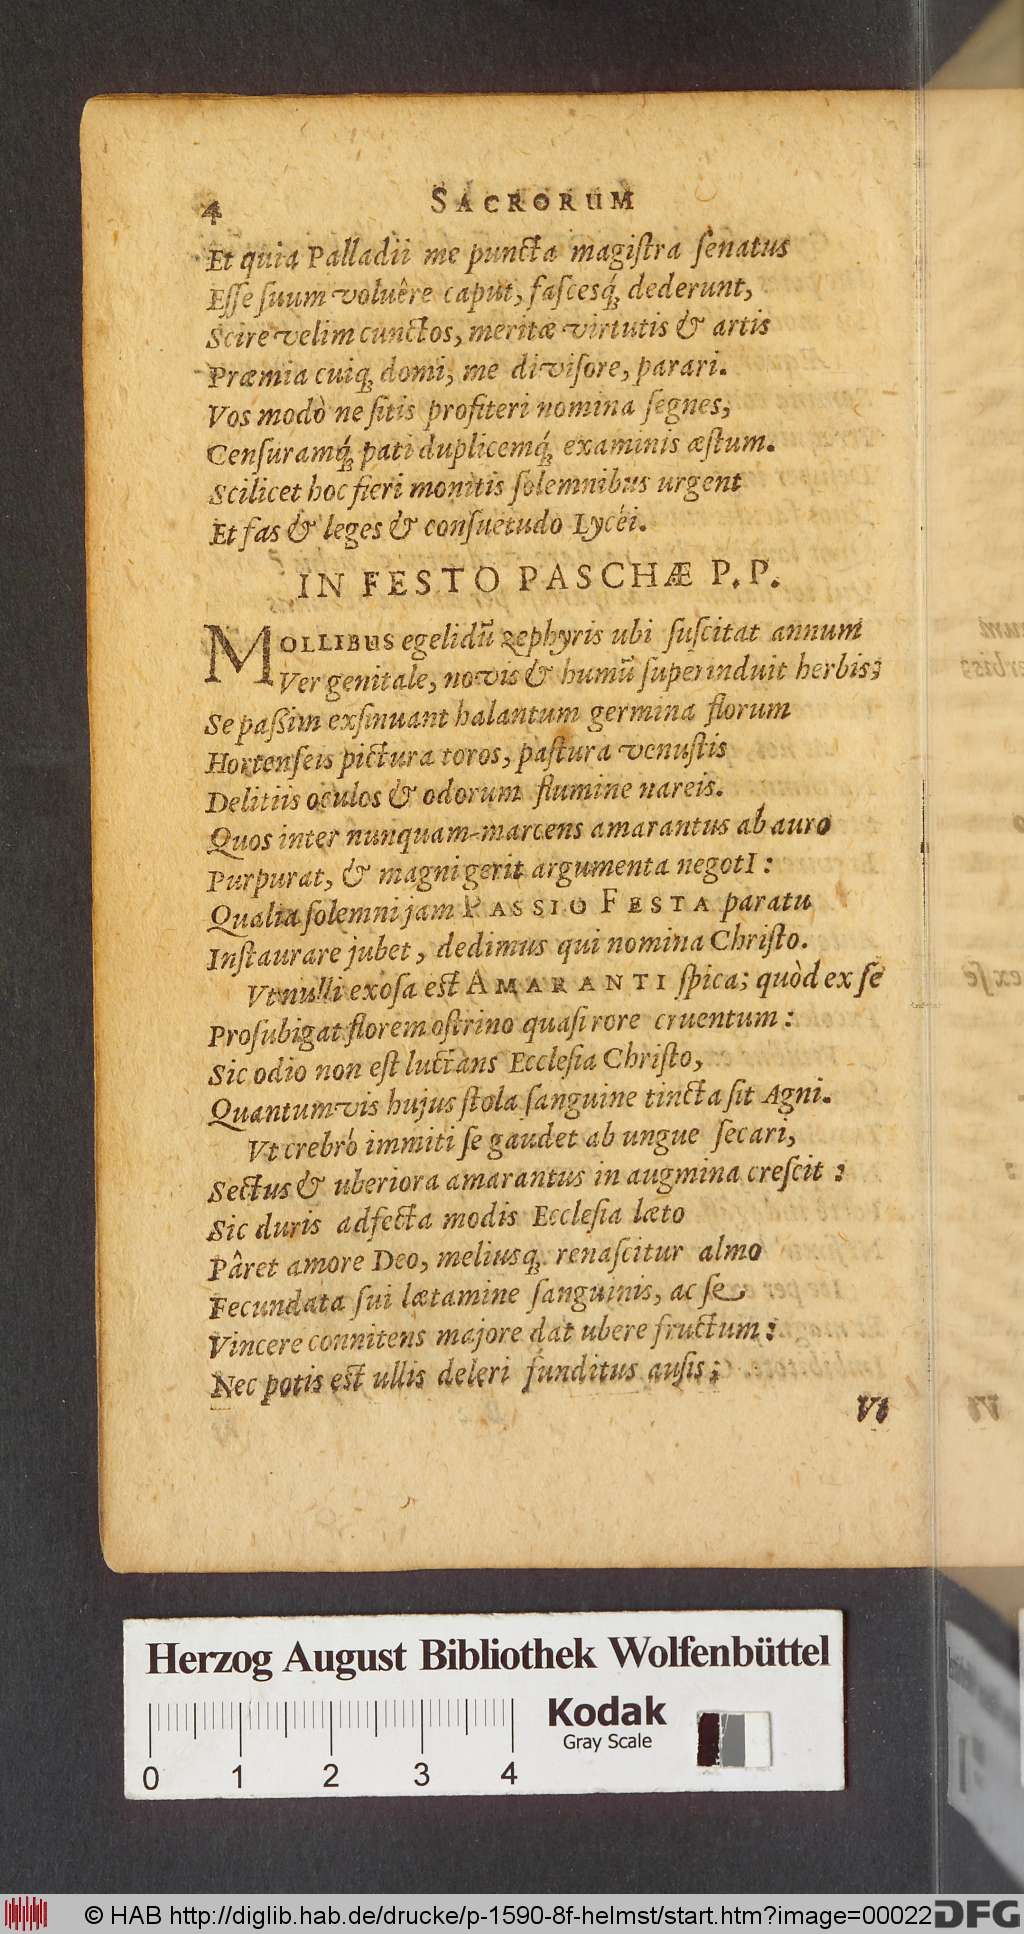 4 SACRORUM
Et quia Palladii me puncta magiſtra ſenatus
Eſſe ſuum voluêre caput, faſcesq́; dederunt,
Scire velim cunctos, meritæ virtutis & artis
Præmia cuiq; domi, me diviſore, parari.
Vos modò ne ſitis profiteri nomina ſegnes,
Cenſuramq́; pati duplicemq́; examinis æſtum.
Scilicet hoc fieri monitis ſolemnibus urgent
Et fas & leges & conſuetudo Lycéi.
IN FESTO PASCHÆ P. P.
MOLLIBUS egelidũ zephyris ubi ſuſcitat annum
Ver genitale, novis & humũ ſuperinduit herbis;
Se paßim exſinuant halantum germina florum
Hortenſeis pictura toros, paſtura venuſtis
Delitiis oculos & odorum flumine nareis.
Quos inter nunquam-marcens amarantus ab auro
Purpurat, & magni gerit argumenta negotI:
Qualia ſolemni jam PASSIO FESTA paratu
Inſtaurare jubet, dedimus qui nomina Chriſto.
Vt nulli exoſa eſt AMARANTI ſpica; quòd ex ſe
Proſubigat florem oſtrino quaſi rore cruentum:
Sic odio non eſt luctans Eccleſia Chriſto,
Quantumvis hujus ſtola ſanguine tincta ſit Agni.
Vt crebrò immiti ſe gaudet ab ungue ſecari,
Sectus & uberiora amarantus in augmina creſcit:
Sic duris adfecta modis Eccleſia læto
Pâret amore Deo, meliusq; renaſcitur almo
Fecundata ſui lætamine ſanguinis, ac ſe
Vincere connitens majore dat ubere fructum:
Nec potis eſt ullis deleri funditus auſis;
Vt
Herzog August Bibliothek Wolfenbüttel
Kodak
Gray Scale
0 1 2 3 4
© HAB http://diglib.hab.de/drucke/p-1590-8f-helmst/start.htm?image=00022
DFG